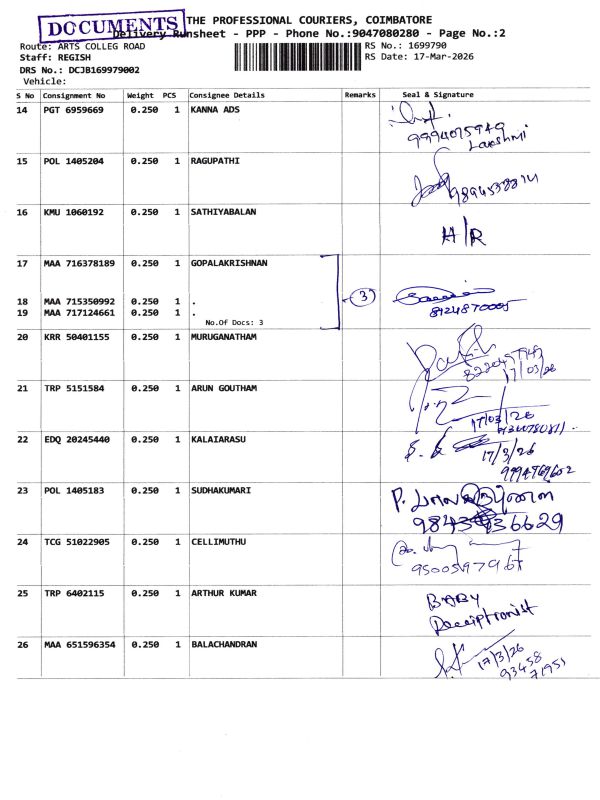 DOCUMENTS
THE PROFESSIONAL COURIERS, COIMBATORE
Delivery Runsheet - PPP - Phone No.:9047080280 - Page No.:2
Route: ARTS COLLEG ROAD
RS No.: 1699790
Staff: REGISH
RS Date: 17-Mar-2026
DRS No.: DCJB169979002
Vehicle:
S No Consignment No Weight PCS Consignee Details Remarks Seal & Signature
14 PGT 6959669 0.250 1 KANNA ADS
9994075949
Lakshmi
15 POL 1405204 0.250 1 RAGUPATHI
16 KMU 1060192 0.250 1 SATHIYABALAN
H/R
17 MAA 716378189 0.250 1 GOPALAKRISHNAN
18 MAA 715350992 0.250 1 .
3
19 MAA 717124661 0.250 1 .
8124870005
No.Of Docs: 3
20 KRR 50401155 0.250 1 MURUGANATHAM
17/03/26
21 TRP 5151584 0.250 1 ARUN GOUTHAM
17/03/26
22 EDQ 20245440 0.250 1 KALAIARASU
17/3/26
9994769602
23 POL 1405183 0.250 1 SUDHAKUMARI
24 TCG 51022905 0.250 1 CELLIMUTHU
9500597967
25 TRP 6402115 0.250 1 ARTHUR KUMAR
BABY
Receiptionist
26 MAA 651596354 0.250 1 BALACHANDRAN
17/3/26
93458
71951